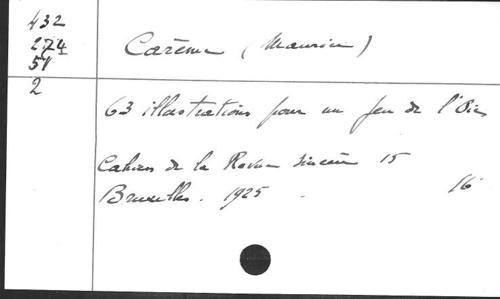 432
274
51
2
Carême (Maurice)
63 illustrations pour un jeu de l'Oie
Cahiers de la Revue sincère 15
Bruxelles. 1925. 16